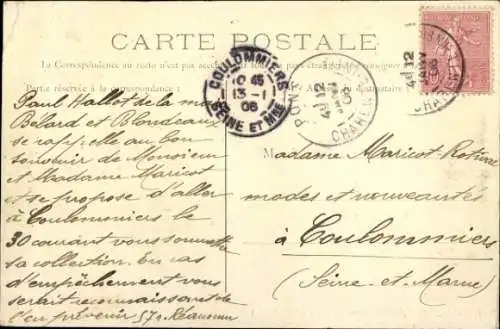 CARTE POSTALE
La Correspondance au recto n'est pas acceptée
Partie réservée à la correspondance
destinataire
COULOMMIERS
10 45
13 - 1
06
SEINE ET MNE
12
CHAREN
12
CHAREN
Paul Hallot de la mon
Bélard et Blondeaux
se rappelle au bon
souvenir de Monsieur
et Madame Maricot
et se propose d'aller
à Coulommiers le
30 courant vous soumettre
sa collection. En cas
d'empêchement vous
serait reconnaissant de
l'en prévenir 57 r. Réaumur
Madame Maricot-Rotival
modes et nouveautés
à Coulommiers
(Seine-et-Marne)